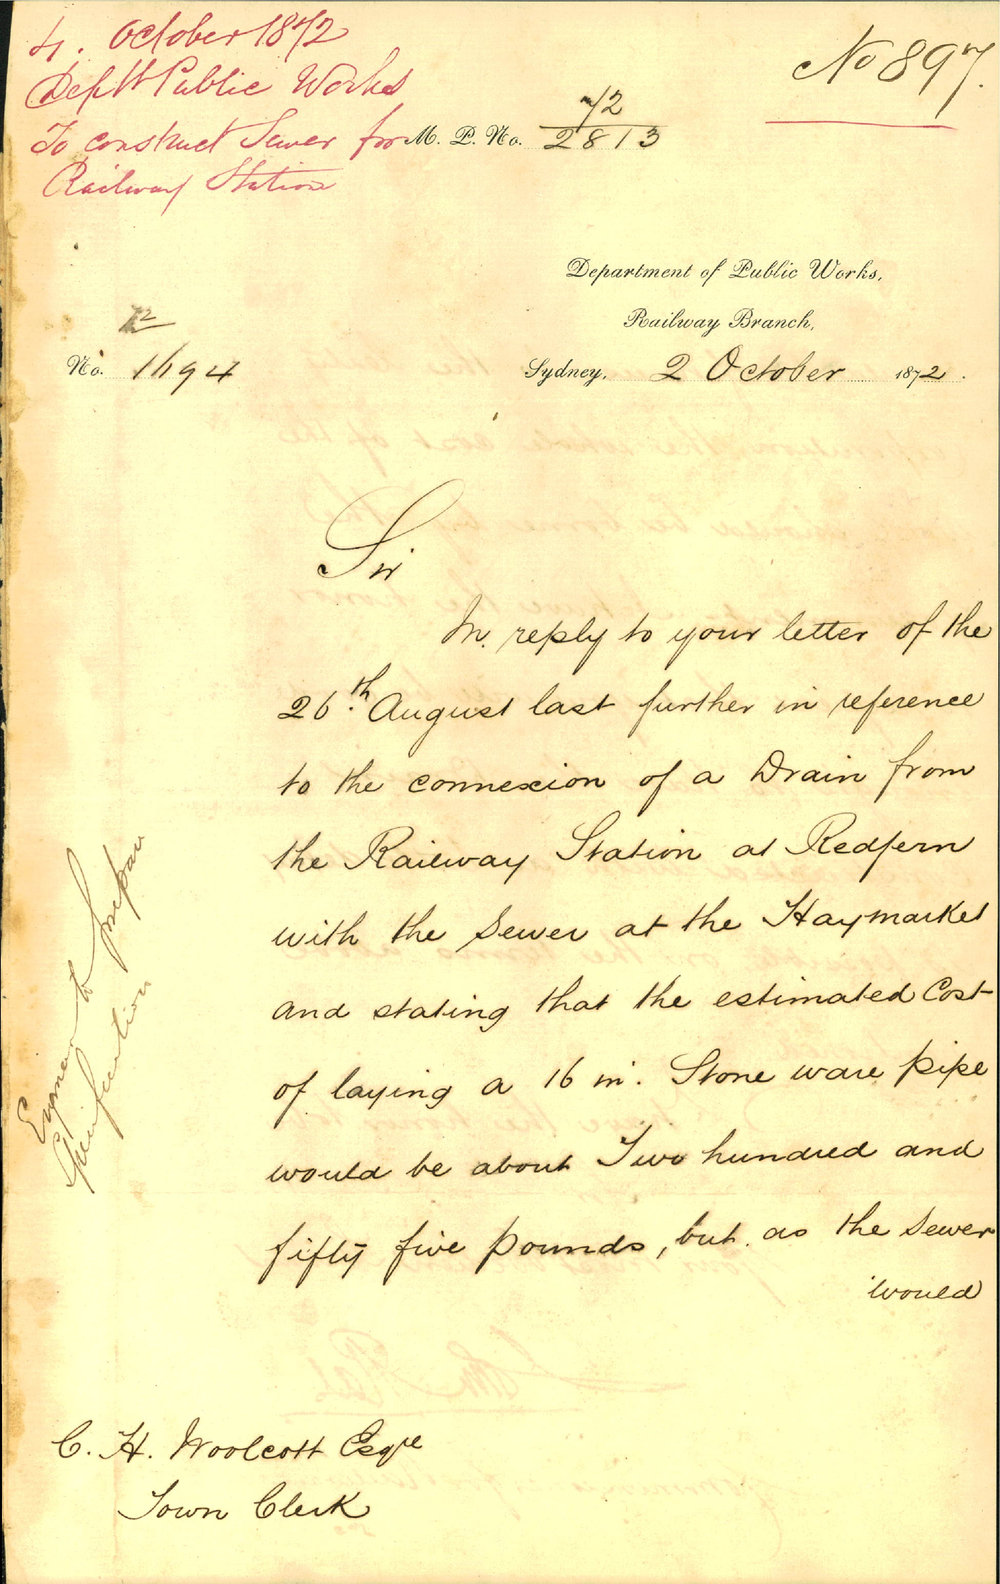 4. October 1872
Dept Public Works
To construct Sewer for
Railway Station
No 897.
M. P. No. 72/2813
Department of Public Works,
Railway Branch,
72
No. 1694
Sydney, 2 October 1872.
Sir
In reply to your letter of the
26th August last further in reference
to the connexion of a Drain from
the Railway Station at Redfern
with the Sewer at the Haymarket
and stating that the estimated Cost
of laying a 16 in. Stone ware pipe
would be about Two hundred and
fifty five pounds, but as the Sewer
would
to prepare
Specification
C. H. Woolcott Esqre
Town Clerk